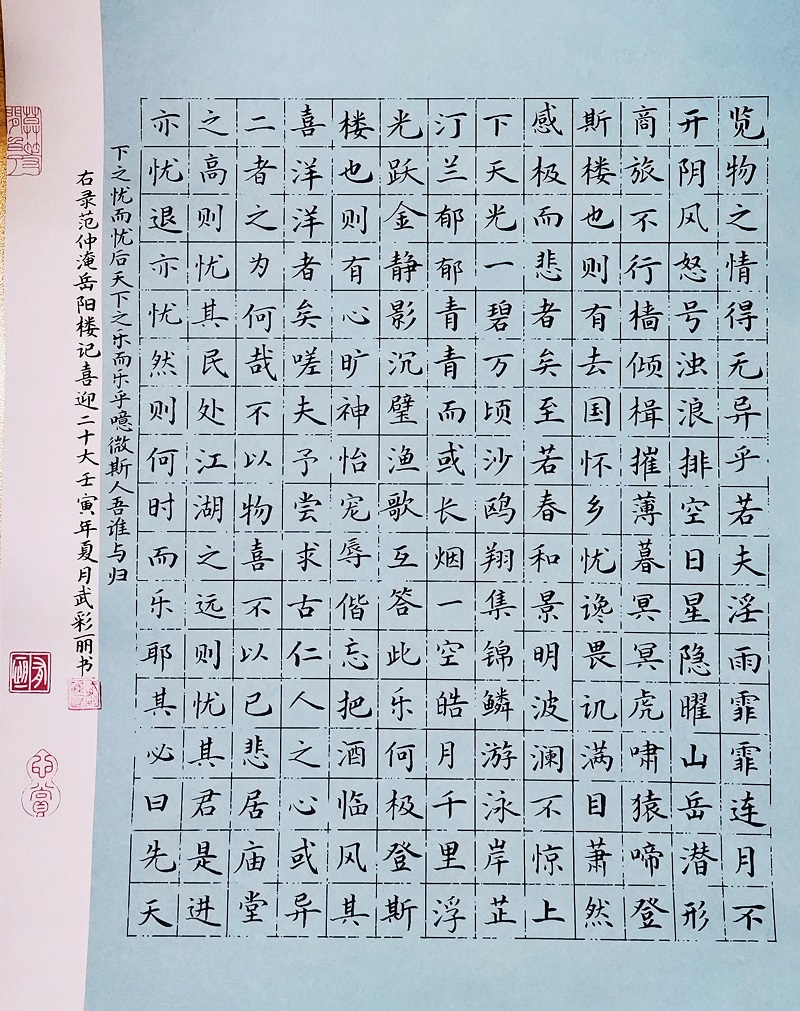 览物之情得无异乎若夫淫雨霏霏连月不
开阴风怒号浊浪排空日星隐曜山岳潜形
商旅不行樯倾楫摧薄暮冥冥虎啸猿啼登
斯楼也则有去国怀乡忧谗畏讥满目萧然
感极而悲者矣至若春和景明波澜不惊上
下天光一碧万顷沙鸥翔集锦鳞游泳岸芷
汀兰郁郁青青而或长烟一空皓月千里浮
光跃金静影沉璧渔歌互答此乐何极登斯
楼也则有心旷神怡宠辱偕忘把酒临风其
喜洋洋者矣嗟夫予尝求古仁人之心或异
二者之为何哉不以物喜不以己悲居庙堂
之高则忧其民处江湖之远则忧其君是进
亦忧退亦忧然则何时而乐耶其必曰先天
下之忧而忧后天下之乐而乐乎噫微斯人吾谁与归
右录范仲淹岳阳楼记喜迎二十大壬寅年夏月武彩丽书